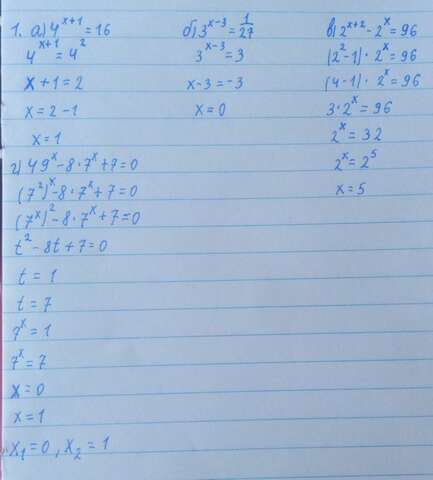 1. а) 4^(x+1) = 16
4^(x+1) = 4^2
x + 1 = 2
x = 2 - 1
x = 1
б) 3^(x-3) = 1/27
3^(x-3) = 3
x - 3 = -3
x = 0
в) 2^(x+2) - 2^x = 96
(2^2 - 1) · 2^x = 96
(4 - 1) · 2^x = 96
3 · 2^x = 96
2^x = 32
2^x = 2^5
x = 5
г) 49^x - 8 · 7^x + 7 = 0
(7^2)^x - 8 · 7^x + 7 = 0
(7^x)^2 - 8 · 7^x + 7 = 0
t^2 - 8t + 7 = 0
t = 1
t = 7
7^x = 1
7^x = 7
x = 0
x = 1
x₁ = 0, x₂ = 1